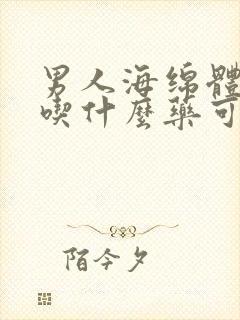 男人海绵體
喫什麼藥可
陌今夕